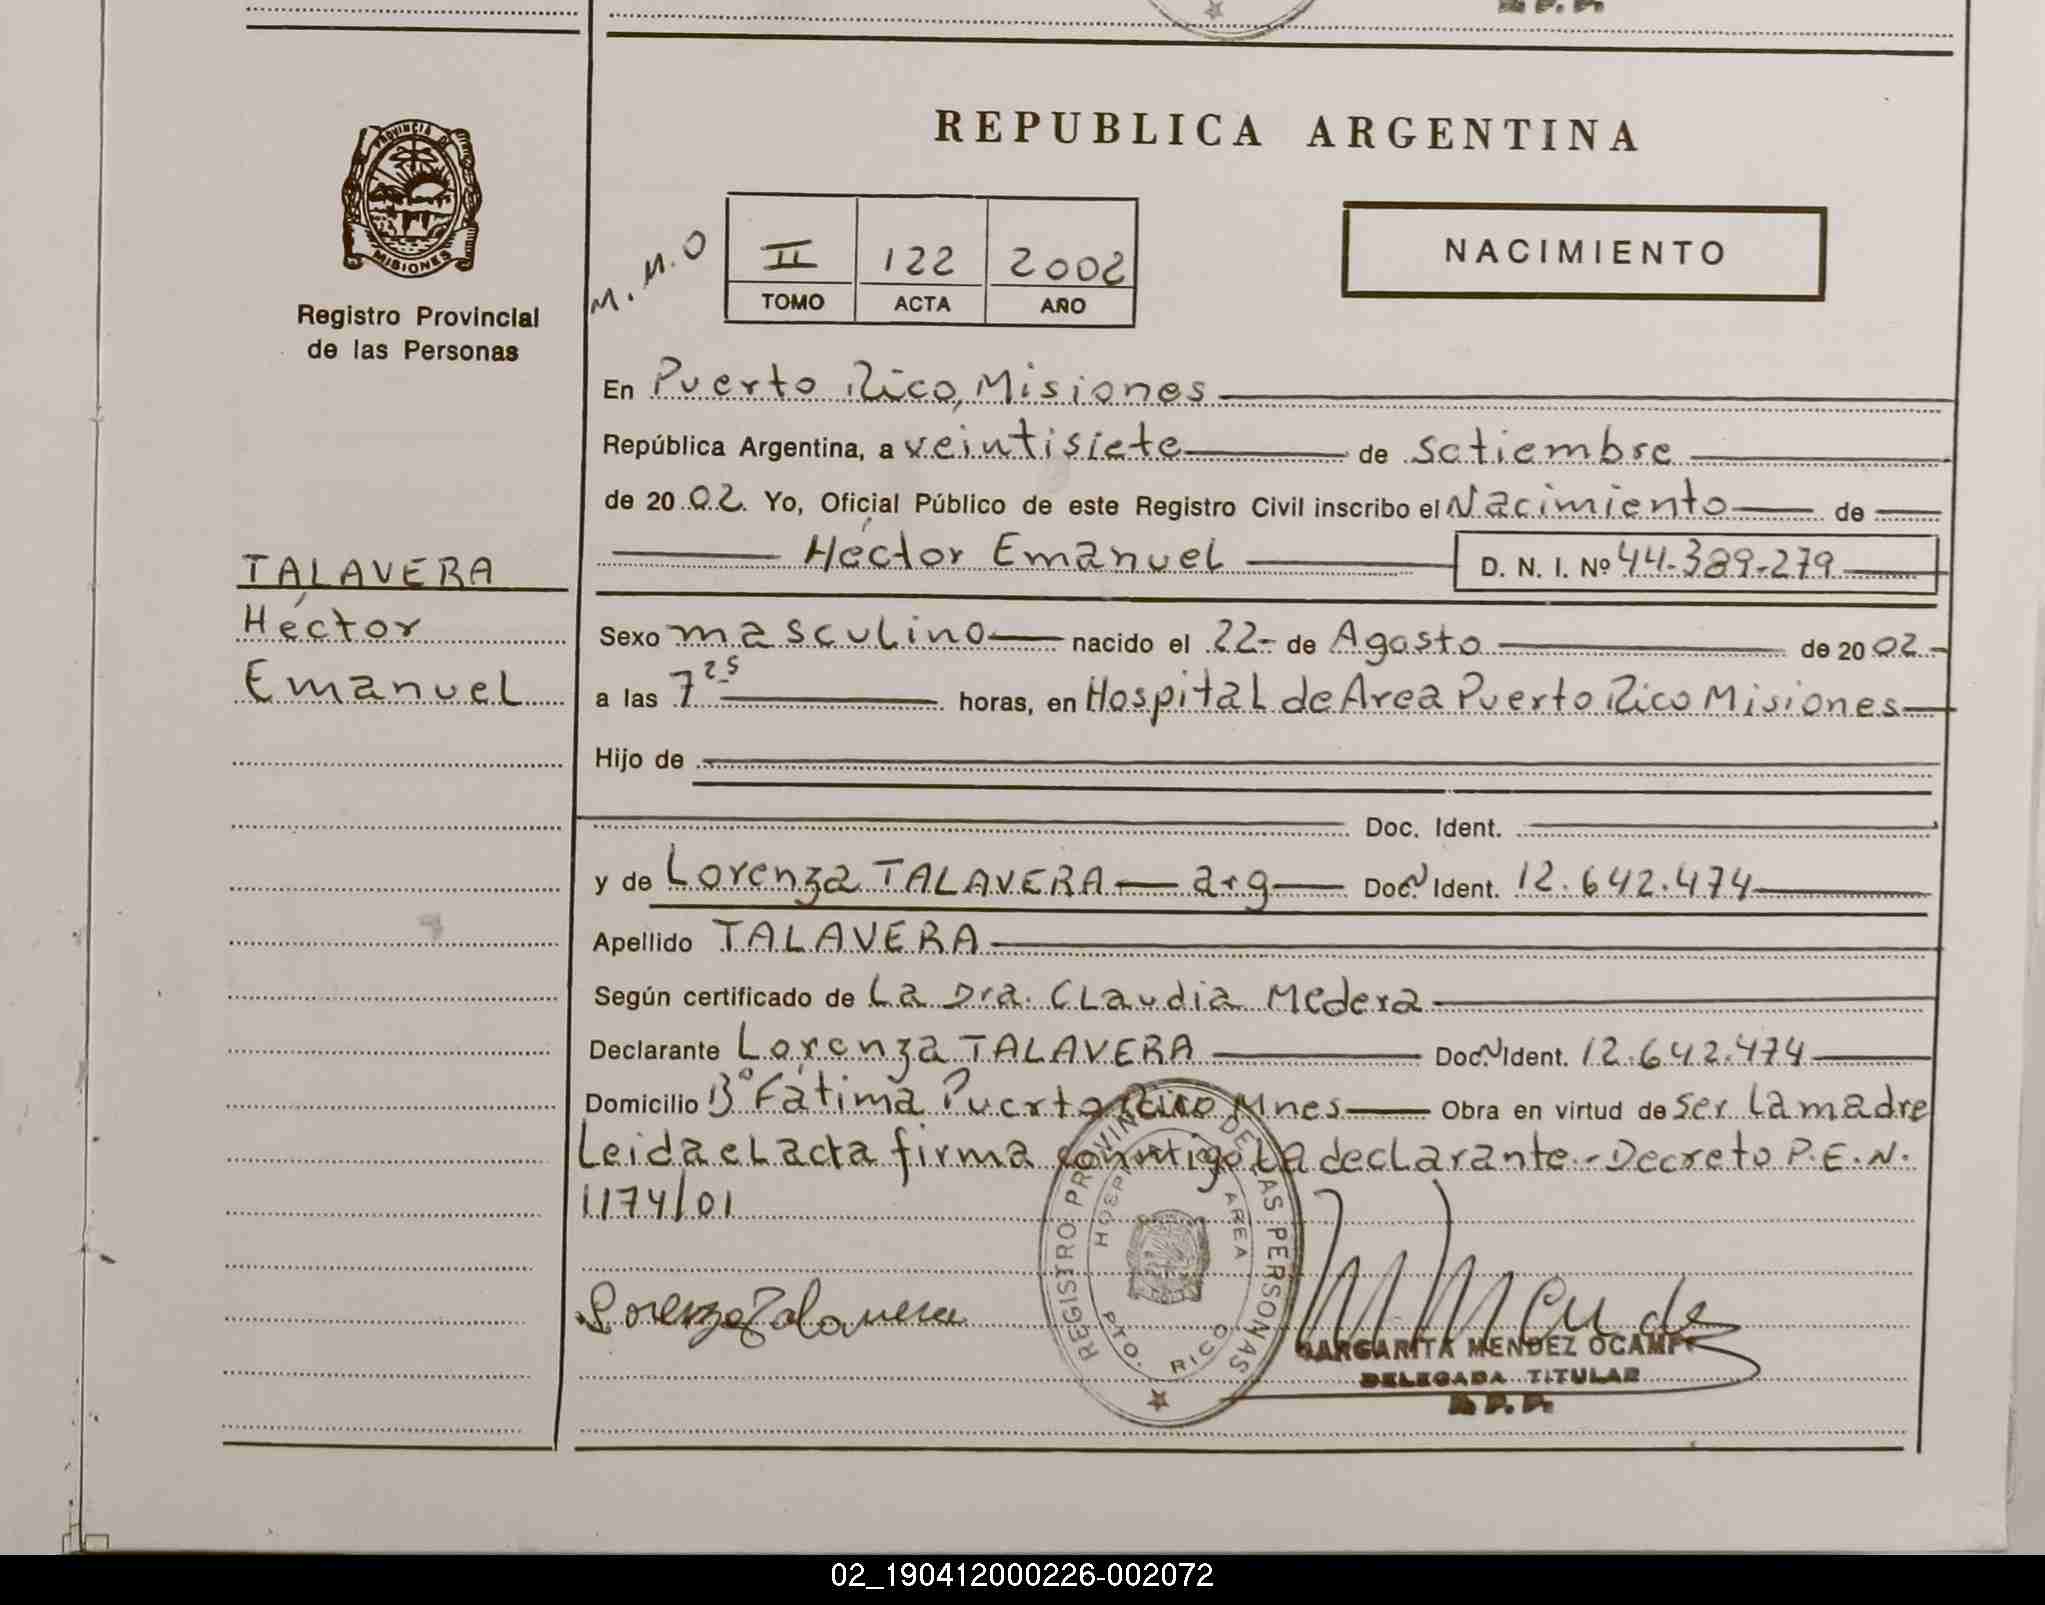 REPUBLICA ARGENTINA
PROVINCIA DE
MISIONES
Registro Provincial
de las Personas
M.M.O
II 122 2002
TOMO ACTA AÑO
NACIMIENTO
En Puerto Rico, Misiones
República Argentina, a veintisiete de Setiembre
de 2002. Yo, Oficial Público de este Registro Civil inscribo el Nacimiento de
Héctor Emanuel D. N. I. Nº 44-389-279
TALAVERA
Héctor
Emanuel
Sexo masculino nacido el 22- de Agosto de 2002.-
a las 7 25 horas, en Hospital de Area Puerto Rico Misiones
Hijo de
Doc. Ident.
y de Lorenza TALAVERA — arg — Doc. Ident. 12.642.474
Apellido TALAVERA
Según certificado de La Dra. Claudia Medera
Declarante Lorenza TALAVERA Doc. Ident. 12.642.474
Domicilio Bº Fátima Puerto Rico Mnes Obra en virtud de ser la madre
Leida el acta firma conmigo La declarante.- Decreto P.E.N.
1174/01
Lorenza Talavera
REGISTRO PROVINCIAL DE LAS PERSONAS
AREA
PTO. RICO
M Mendez
MARGARITA MENDEZ OCAMPO
DELEGADA TITULAR
02_190412000226-002072